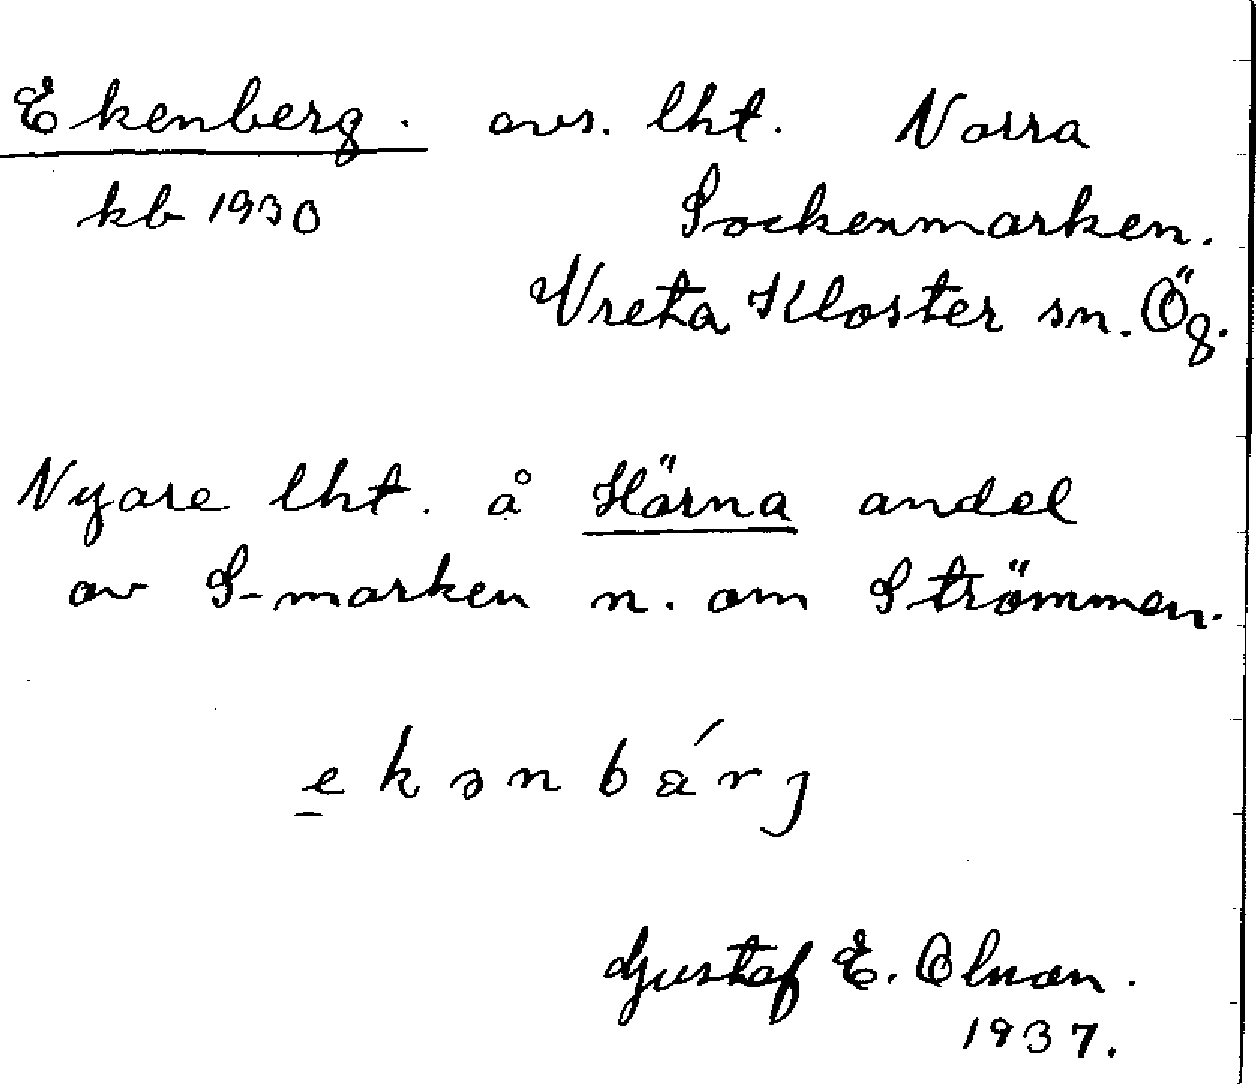 Ekenberg. avs. lht. Norra
kb 1930 Sockenmarken.
Vreta Kloster sn. Ög.
Nyare lht. å Härna andel
av S-marken n. om Strömmen.
e k ə n b ǽ r j
Gustaf E. Olson.
1937.